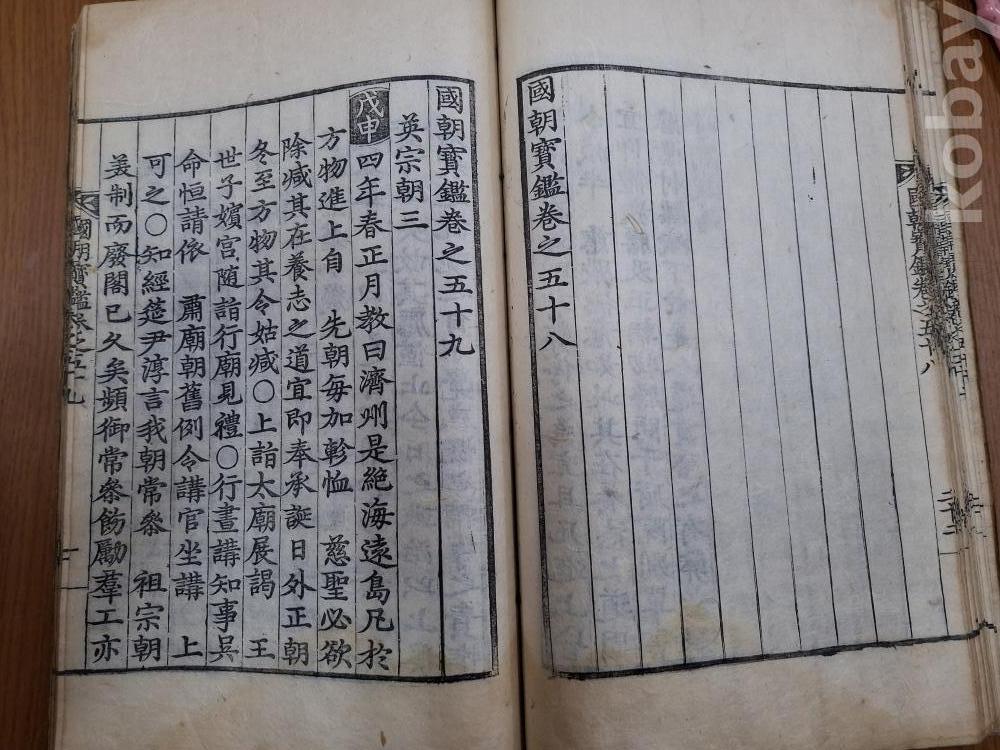 國朝寶鑑卷之五十八
國朝寶鑑卷之五十九
英宗朝三
戊申四年春正月教曰濟州是絶海遠島凡於
方物進上自 先朝每加軫恤 慈聖必欲
除減其在養志之道宜即奉承誕日外正朝
冬至方物其令姑減○上詣太廟展謁 王
世子嬪宮隨詣行廟見禮○行晝講知事吳
命恒請依 肅廟朝舊例令講官坐講 上
可之○知經筵尹淳言我朝常參 祖宗朝
美制而廢閣已久矣頻御常參飭勵羣工亦
國朝寶鑑卷之五十九
一
國朝寶鑑卷之五十八
kobay